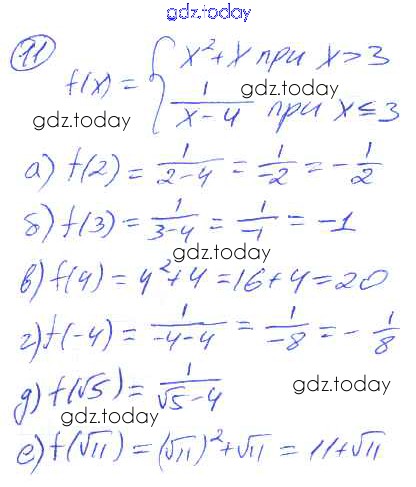 gdz.today
11
f(x) = { x² + x при x > 3
1/(x-4) при x ≤ 3
gdz.today
gdz.today
а) f(2) = 1/(2-4) = 1/-2 = -1/2
б) f(3) = 1/(3-4) = 1/-1 = -1
gdz.today
в) f(4) = 4² + 4 = 16 + 4 = 20
г) f(-4) = 1/(-4-4) = 1/-8 = -1/8
gdz.today
д) f(√5) = 1/(√5-4)
gdz.today
gdz.today
е) f(√11) = (√11)² + √11 = 11 + √11